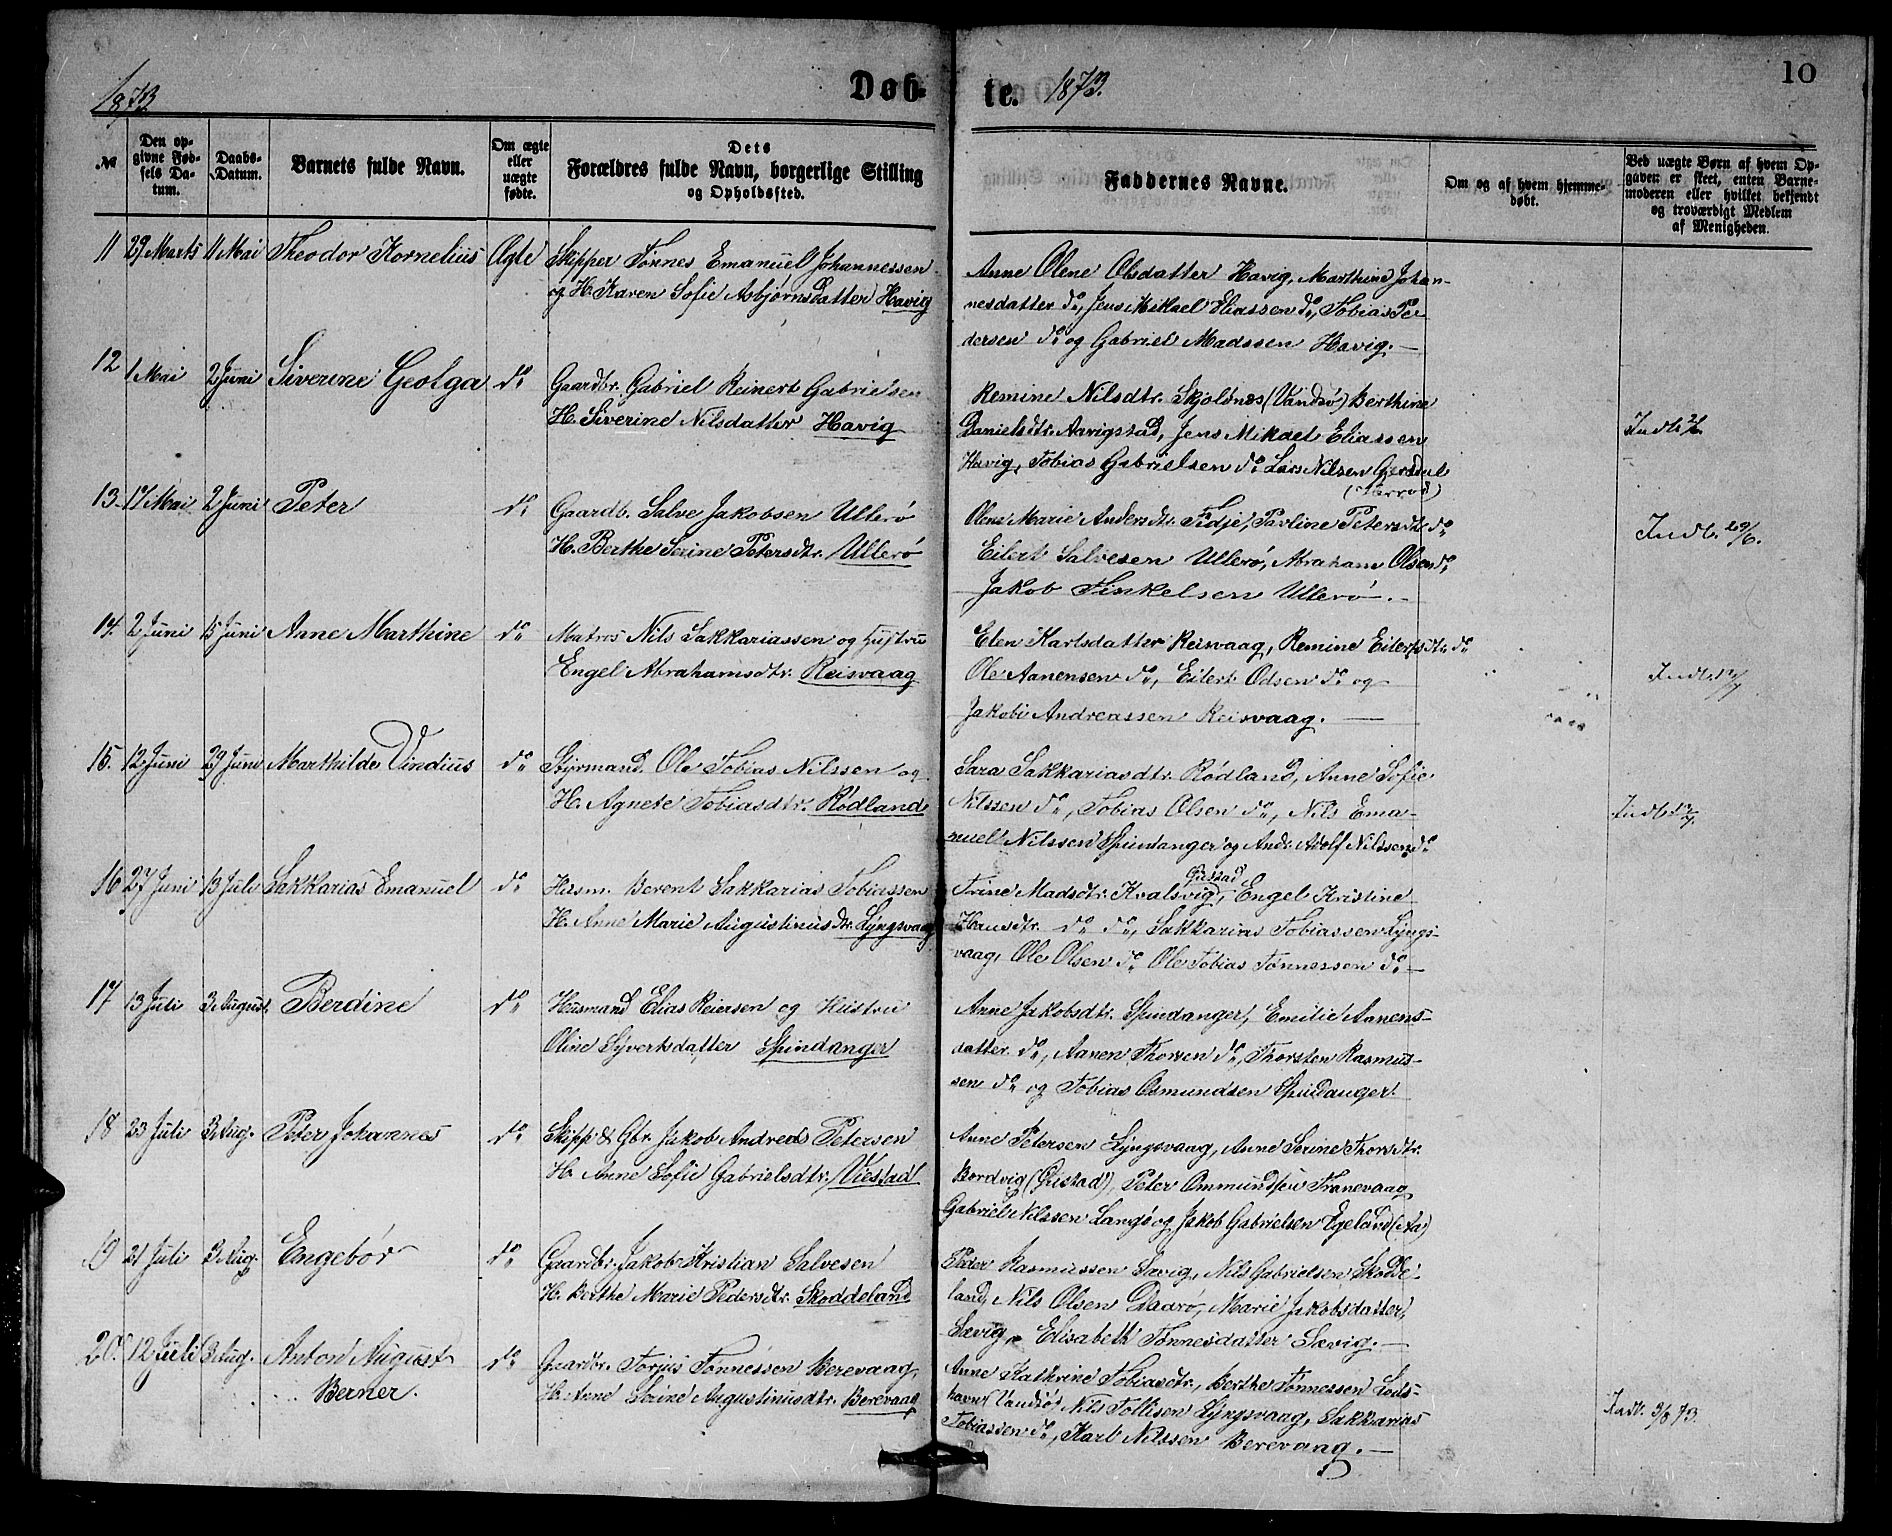 1873
Døb-
te.
1873.
10
№
Den op-
givne Fød-
sels Da-
tum.
Daabs-
Datum.
Barnets fulde Navn.
Om ægte
eller
uægte
fødte.
Dets
Forældres fulde Navn, borgerlige Stilling
og Opholdssted.
Faddernes Navne.
Om og af hvem hjemme-
døbt.
Ved uægte Børn af hvem Op-
gaven er skeet, enten Barne-
moderen eller hvilket bekjendt
og troværdigt Medlem
af Menigheden.
11 29 Marts 11 Mai Theodor Kornelius Ægte Skipper Tønnes Emanuel Johannessen
og H. Karen Sofie Asbjørnsdatter Havig
Anne Olene Olsdatter Havig, Marthine Johan-
nesdatter do, Jens Mikael Eliassen do, Tobias Pe-
dersen do og Gabriel Madssen Havig.—
12 1 Mai 2 Juni Siverine Geolga do Gaardbr. Gabriel Reinert Gabrielsen
H. Siverine Nilsdatter Havig
Remine Nilsdtr. Skjolsnes (Vandsø) Berthine
Danielsdtr. Aavigstad, Jens Mikael Eliassen
Havig, Tobias Gabrielsen do Lars Nilsen Gjersdal
(Herred)
13. 17 Mai 2 Juni Peter do Gaardb. Salve Jakobsen Ullerø
H. Berthe Serine Petersdtr. Ullerø
Olene Marie Andersdtr. Fidje, Pauline Petersdtr. do
Eilert Salvesen Ullerø, Abraham Olsen do
Jakob Finkelsen Ullerø.—
Indb. 29/6.
14. 2 Juni 15 Juni Anne Marthine do Matros Nils Sakkariassen og Hustru
Engel Abrahamsdtr. Reisvaag
Elen Karlsdatter Reisvaag, Remine Eilertsdtr. do
Ole Aanensen do, Eilert Odsen do og
Jakobi Andreassen Reisvaag.—
15. 12 Juni 29 Juni Marthilde Vindius do Styrmand Ole Tobias Nilssen og
H. Agnete Tobiasdtr. Rødland
Sara Sakkariasdtr. Rødland, Anne Sofie
Nilssen do, Tobias Olsen do, Nils Ema-
nuel Nilssen Spindanger og Andr. Adolf Nilssen do
16 27 Juni 13 Juli Sakkarias Emanuel do Husm. Berent Sakkarias Tobiassen
H. Anne Marie Augustinusdtr. Lyngsvaag
Trine Madsdtr. Kvalsvig, Engel Kristine
Hansdtr. do do, Sakkarias Tobiassen Lyngs-
vaag, Ole Olsen do Ole Tobias Tønnessen do—
17 13 Juli 3 August Berdine do Husmand Elias Reiersen og Hustru
Oline Syvertsdatter Spindanger
Anne Jakobsdtr. Spindanger, Emilie Aanens-
datter do, Aanen Thorsen do, Thorsten Rasmus-
sen do og Tobias Osmundsen Spindanger.
18 23 Juli 3 Aug. Peter Johannes do Skipp & Gbr. Jakob Andreas Petersen
H. Anne Sofie Gabrielsdtr. Viestad
Anne Petersen Lyngsvaag, Anne Serine Thorsdtr.
Bordvig (Øristad), Peter Ommundsen Tranevaag
Gabriel Nilssen Langø og Jakob Gabrielsen Egeland (Aa)
19 21 Juli 3 Aug. Engebør do Gaardbr. Jakob Kristian Salvesen
H. Berthe Marie Pedersdtr. Skoddeland
Peder Rasmussen Sævig, Nils Gabrielsen Skodde-
land, Nils Olsen Daarø, Marie Jakobsdatter,
Sævig, Elisabeth Tønnesdatter Sævig.—
20. 12 Juli 3 Aug. Anton August
Berner.
do Gaardbr. Torjus Tønnessen Berevaag,
H. Anne Serine Augustinusdtr. Berevaag
Anne Kathrine Tobiasdtr., Berthe Tønnessen Lods-
havn (Vandsø) Nils Tollisen Lyngsvaag, Sakkarias
Tobiassen do, Karl Nilssen Berevaag.—
Indb. 3/8 73.